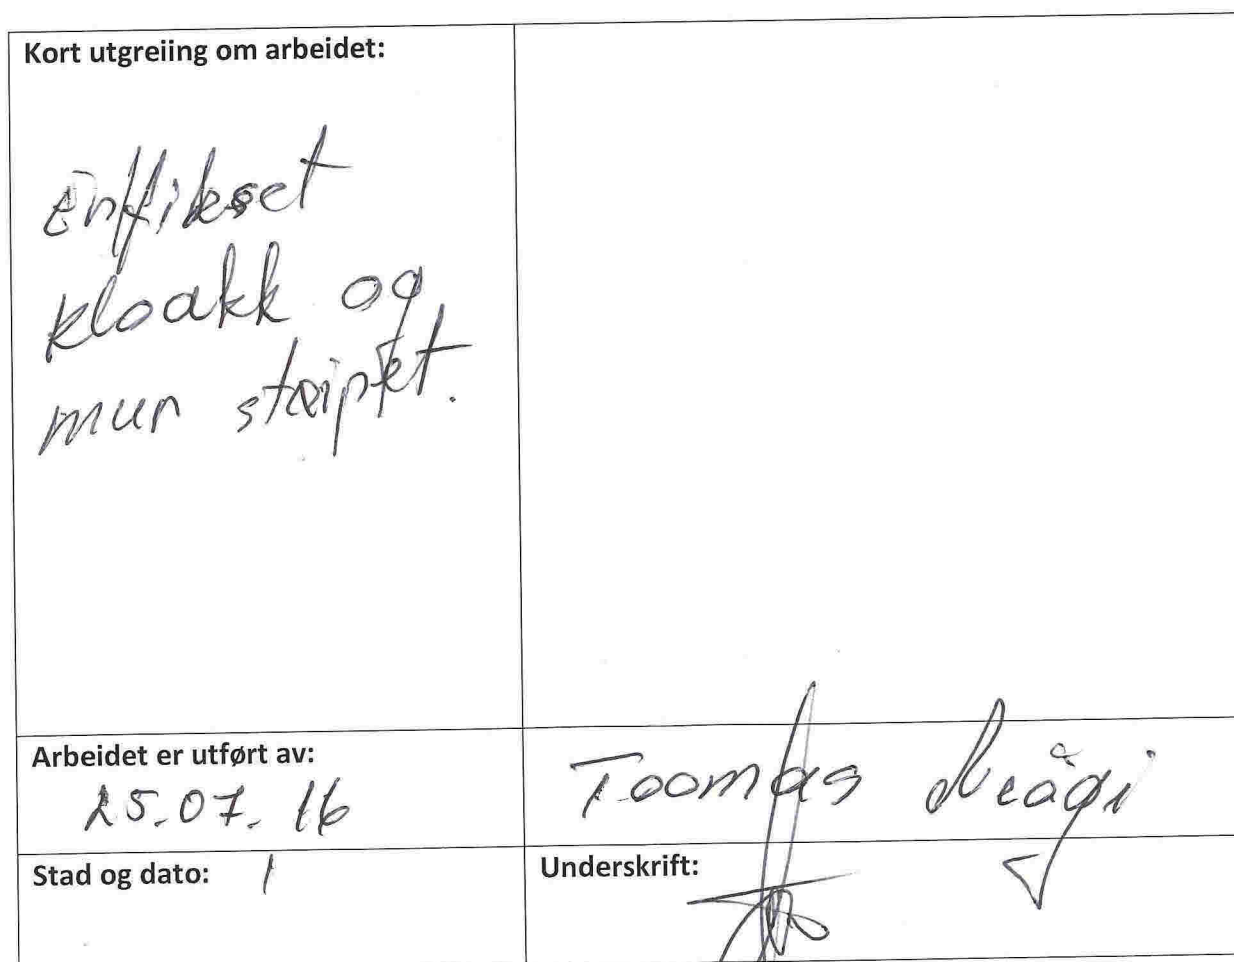 Kort utgreiing om arbeidet:
Er fikset
kloakk og
mur
Arbeidet er utført av:
25.07.16
Toomas
Stad og dato:
Underskrift: